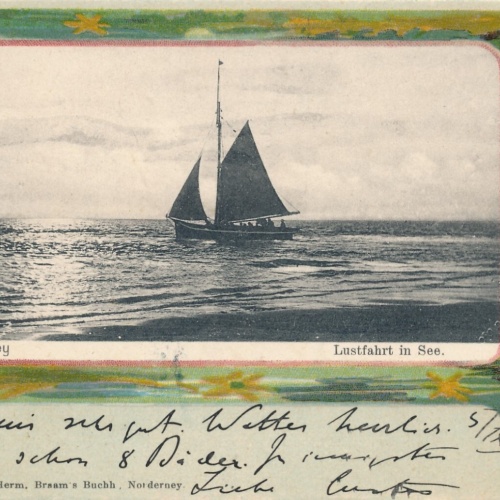 ey
Lustfahrt in See.
sehr gut. Wetter herrlich. 5/
schon 8 Bäder. In innigster
Herm. Braam's Buchh., Norderney.
Liebe